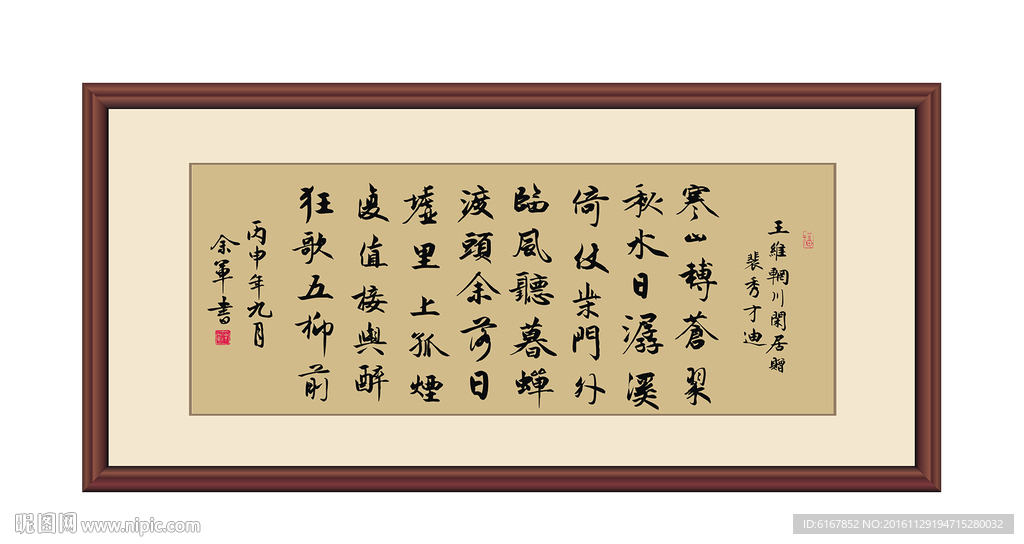 王維輞川閑居贈
裴秀才迪
寒山轉蒼翠
秋水日潺溪
倚仗柴門外
臨風聽暮蟬
渡頭余落日
墟里上孤煙
復值接輿醉
狂歌五柳前
丙申年九月
余軍書
昵图网 www.nipic.com
ID:6167852 NO:20161129194715280032